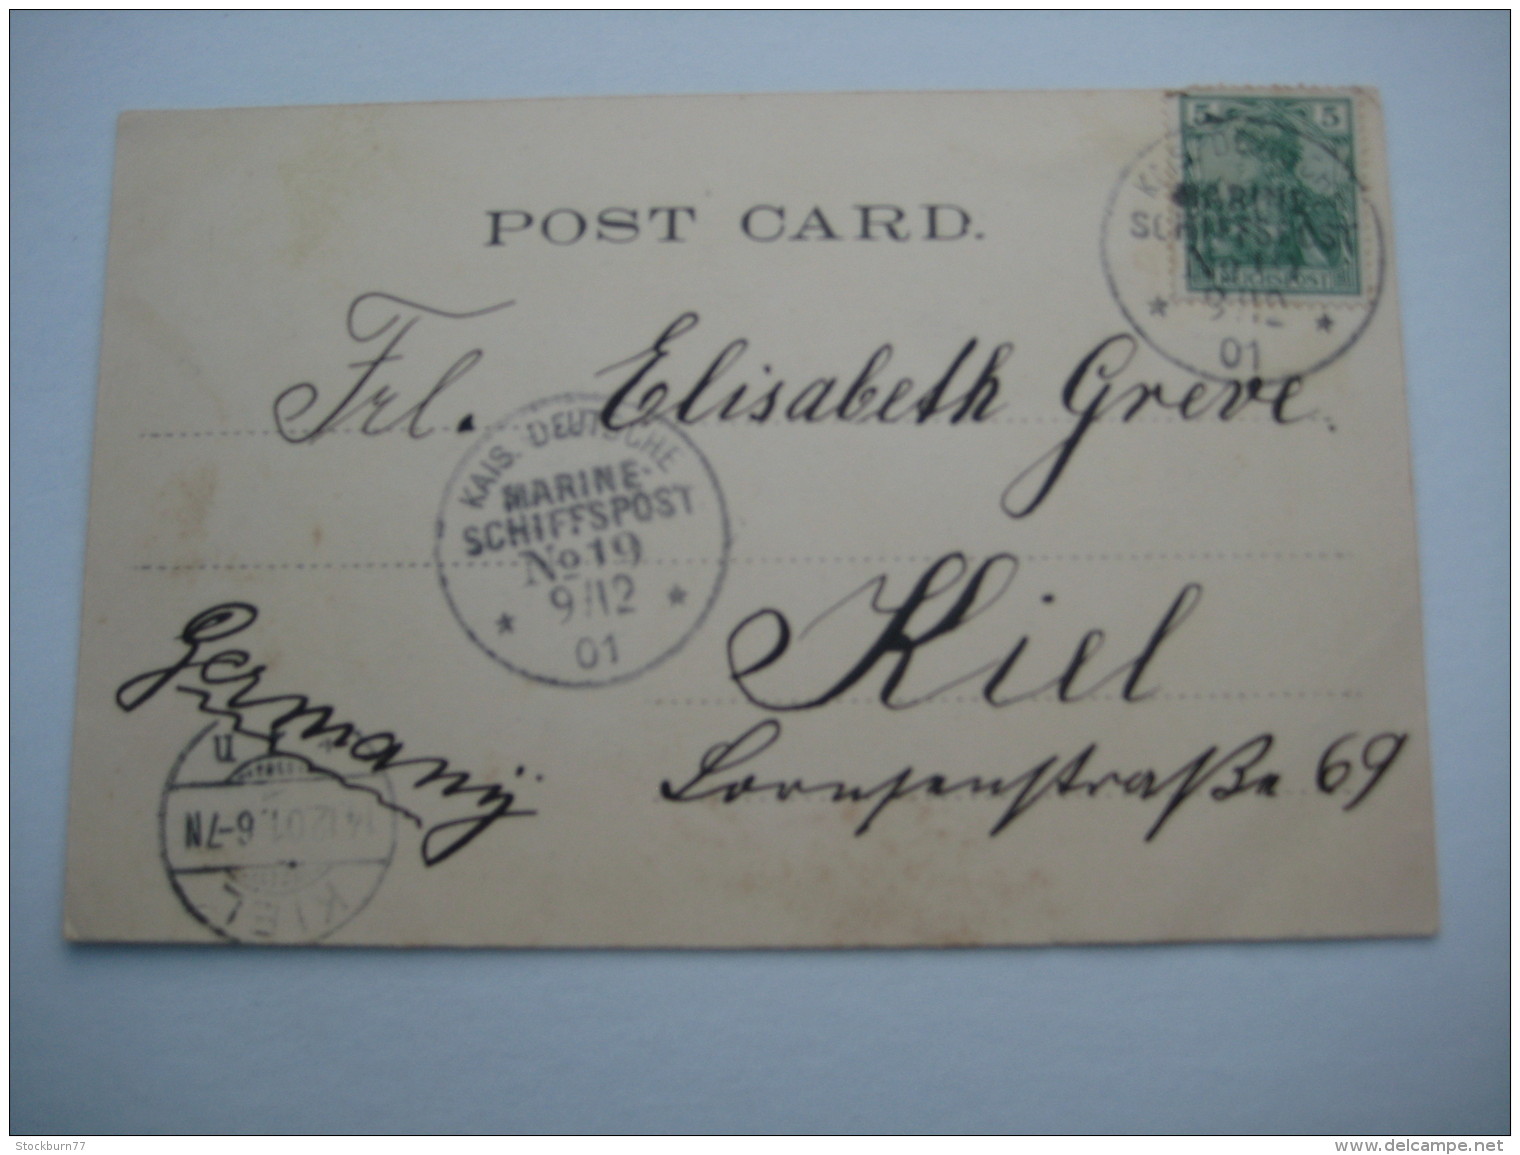 5 5
REICHSPOST
MARINE-
SCHIFFSPOST
9/12
01
POST CARD.
Frl. Elisabeth Greve.
KAIS. DEUTSCHE
MARINE-
SCHIFFSPOST
No 19
9/12
01
Kiel
Germany
Lornsenstraße 69
KIEL
14.12.01. 6-7N
Stockburn77
www.delcampe.net